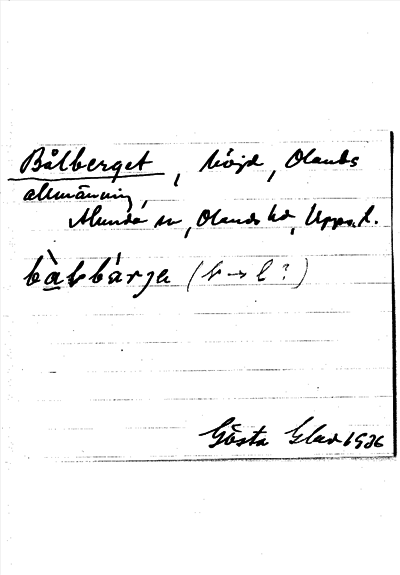 Bålberget, höjd, Olands
allmänning,
Alunda sn, Olands hd, Upps. l.
bàkbárje (k → l ?)
Gösta Glad 1936